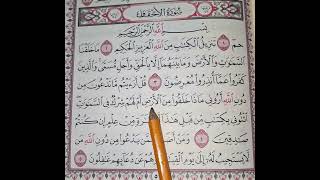 سُورَةُ الْأَحْقَافِ
بِسْمِ اللَّهِ الرَّحْمَٰنِ الرَّحِيمِ
حمٓ ١ تَنزِيلُ الْكِتَٰبِ مِنَ اللَّهِ الْعَزِيزِ الْحَكِيمِ ٢ مَا خَلَقْنَا
السَّمَٰوَٰتِ وَالْأَرْضَ وَمَا بَيْنَهُمَا إِلَّا بِالْحَقِّ وَأَجَلٍ مُّسَمًّى وَالَّذِينَ
كَفَرُوا عَمَّا أُنذِرُوا مُعْرِضُونَ ٣ قُلْ أَرَءَيْتُم مَّا تَدْعُونَ مِن
دُونِ اللَّهِ أَرُونِي مَاذَا خَلَقُوا مِنَ الْأَرْضِ أَمْ لَهُمْ شِرْكٌ فِي السَّمَٰوَٰتِ
ائْتُونِي بِكِتَٰبٍ مِّن قَبْلِ هَٰذَا أَوْ أَثَٰرَةٍ مِّنْ عِلْمٍ إِن كُنتُمْ
صَٰدِقِينَ ٤ وَمَنْ أَضَلُّ مِمَّن يَدْعُوا مِن دُونِ اللَّهِ مَن
لَّا يَسْتَجِيبُ لَهُ إِلَىٰ يَوْمِ الْقِيَٰمَةِ وَهُمْ عَن دُعَائِهِمْ غَٰفِلُونَ ٥